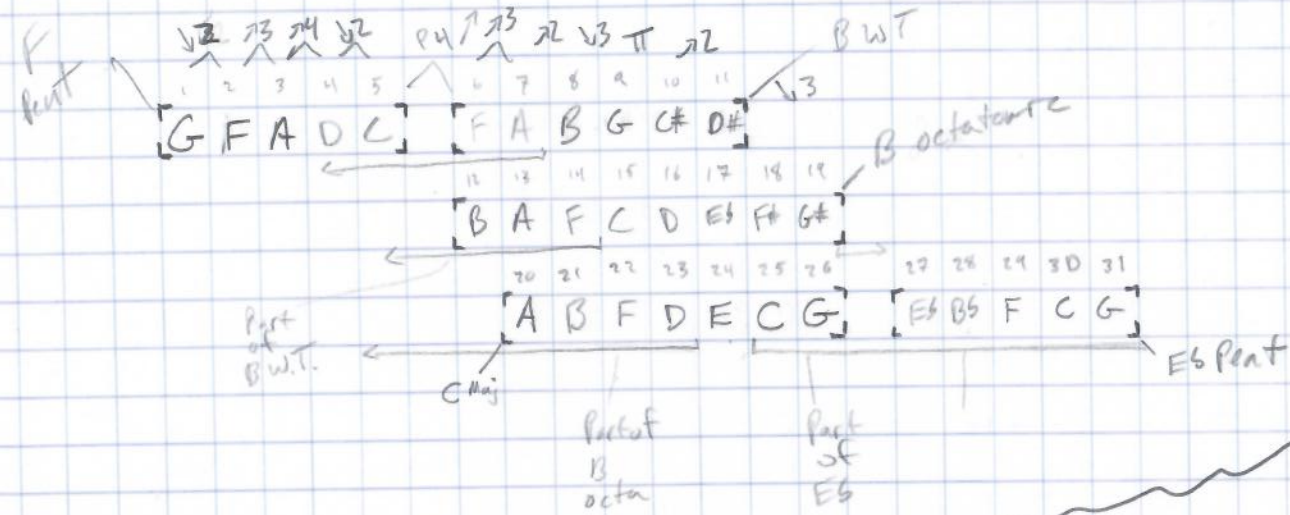 F
Pent
↘2 ↗3 ↗4 ↘2 P4 ↗3 ↗2 ↘3 TT ↗2
B WT
1 2 3 4 5 6 7 8 9 10 11
↘3
[G F A D C] [F A B G C# D#]
B octatonic
12 13 14 15 16 17 18 19
[B A F C D Eb F# G#]
20 21 22 23 24 25 26 27 28 29 30 31
[A B F D E C G] [Eb Bb F C G]
Part
of
B W.T.
C Maj
Eb Pent
Part of
B
octa
Part
of
Eb